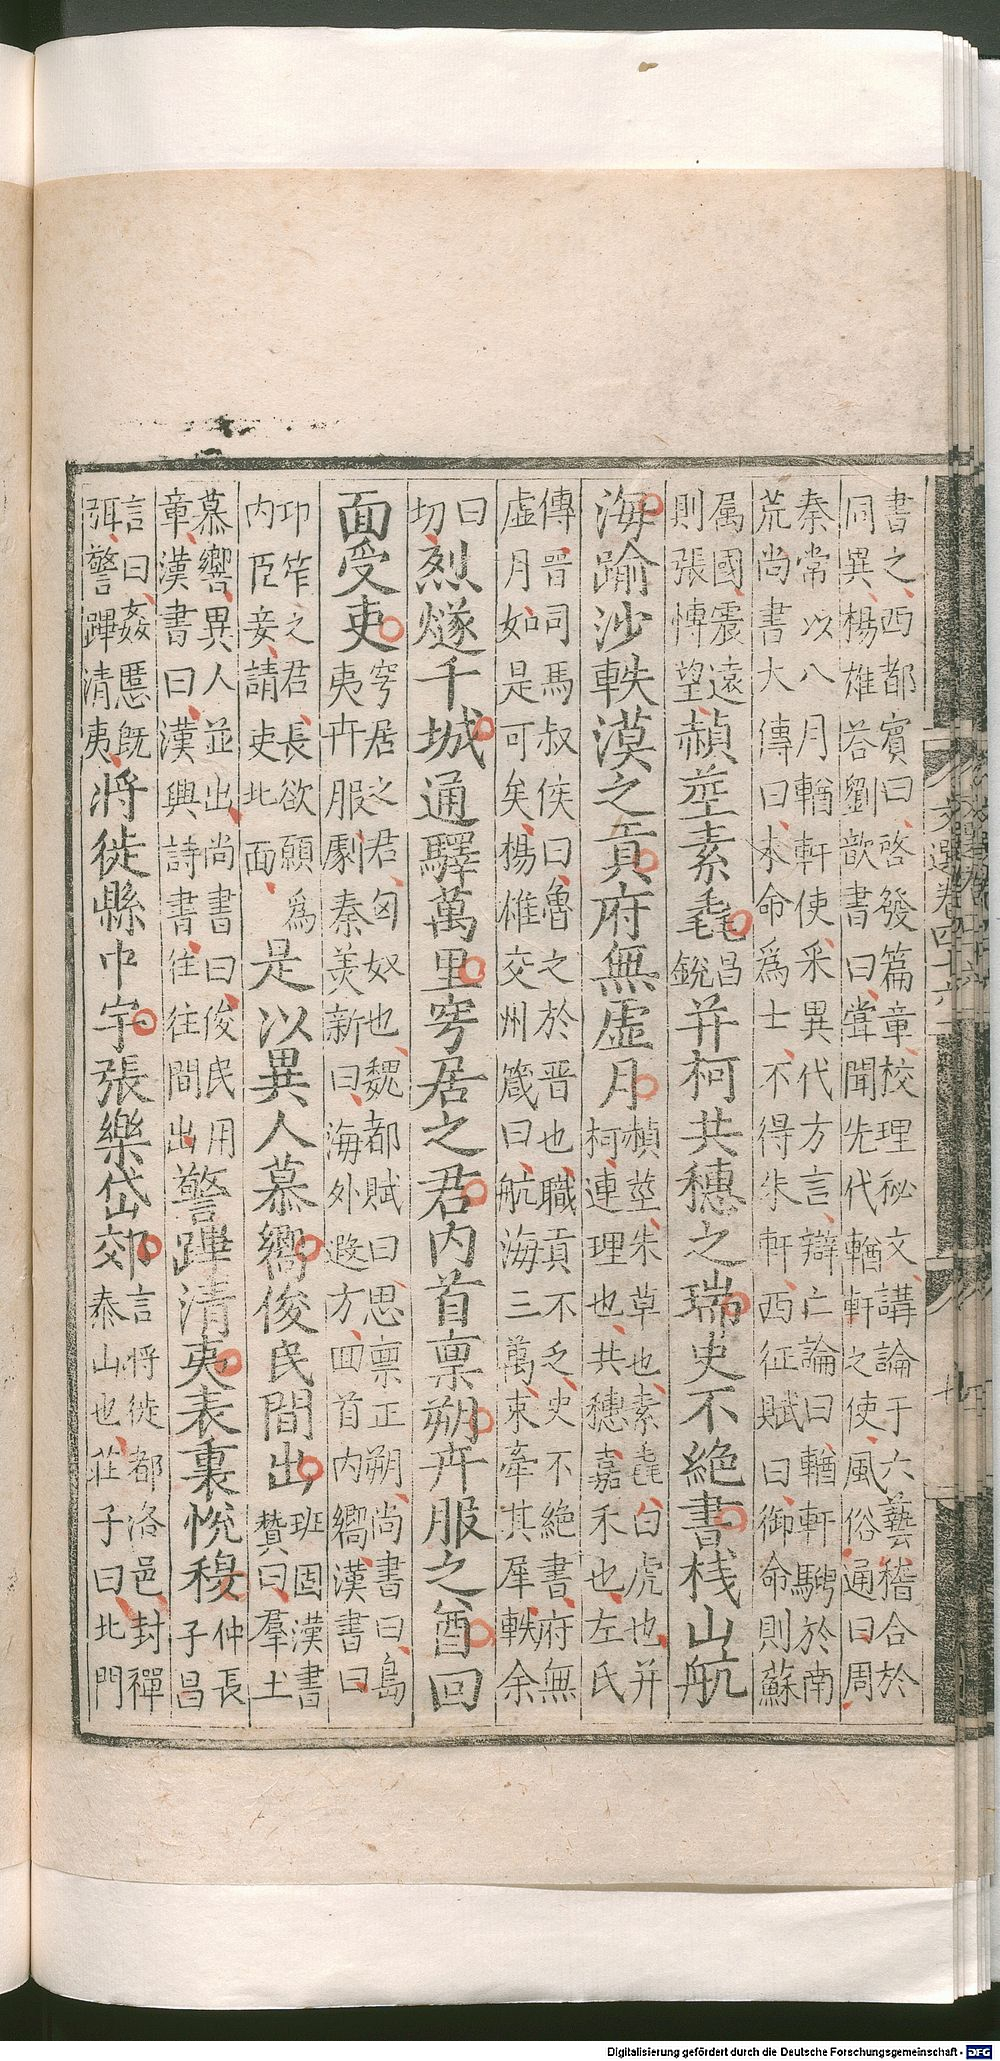 書之西都賓曰啓發篇章校理秘文講論于六藝稽合於
同異楊雄荅劉歆書曰嘗聞先代輶軒之使風俗通曰周
秦常以八月輶軒使采異代方言辯亡論曰輶軒騁於南
荒尚書大傳曰未命爲士不得朱軒西征賦曰御命則蘇
属國震遠
則張愽望
赬莖素毳
昌
銳
并柯共穗之瑞史不絶書栈山航
海踰沙軼漠之貢府無虛月
赬莖朱草也素毳白虎也并
柯連理也共穗嘉禾也左氏
傳晉司馬叔侯曰魯之於晉也職貢不乏史不絶書府無
虛月如是可矣楊雄交州箴曰航海三萬來牽其犀軼余
曰
切
烈燧千城通驛萬里穹居之君内首禀朔卉服之酋回
面受吏
穹居之君匈奴也魏都賦曰思禀正朔尚書曰島
夷卉服劇秦美新曰海外遐方回首内嚮漢書曰
邛笮之君長欲願爲
内臣妾請吏北面
是以異人慕嚮俊民間出
班固漢書
贊曰羣士
慕響異人並出尚書曰俊民用
章漢書曰漢興詩書往往間出
警蹕清夷表裏悅穆
仲長
子昌
言曰姦慝既
弭警蹕清夷
將徙縣中宇張樂岱郊
言將徙都洛邑封禪
泰山也莊子曰北門
文選卷四十六
Digitalisierung gefördert durch die Deutsche Forschungsgemeinschaft - DFG